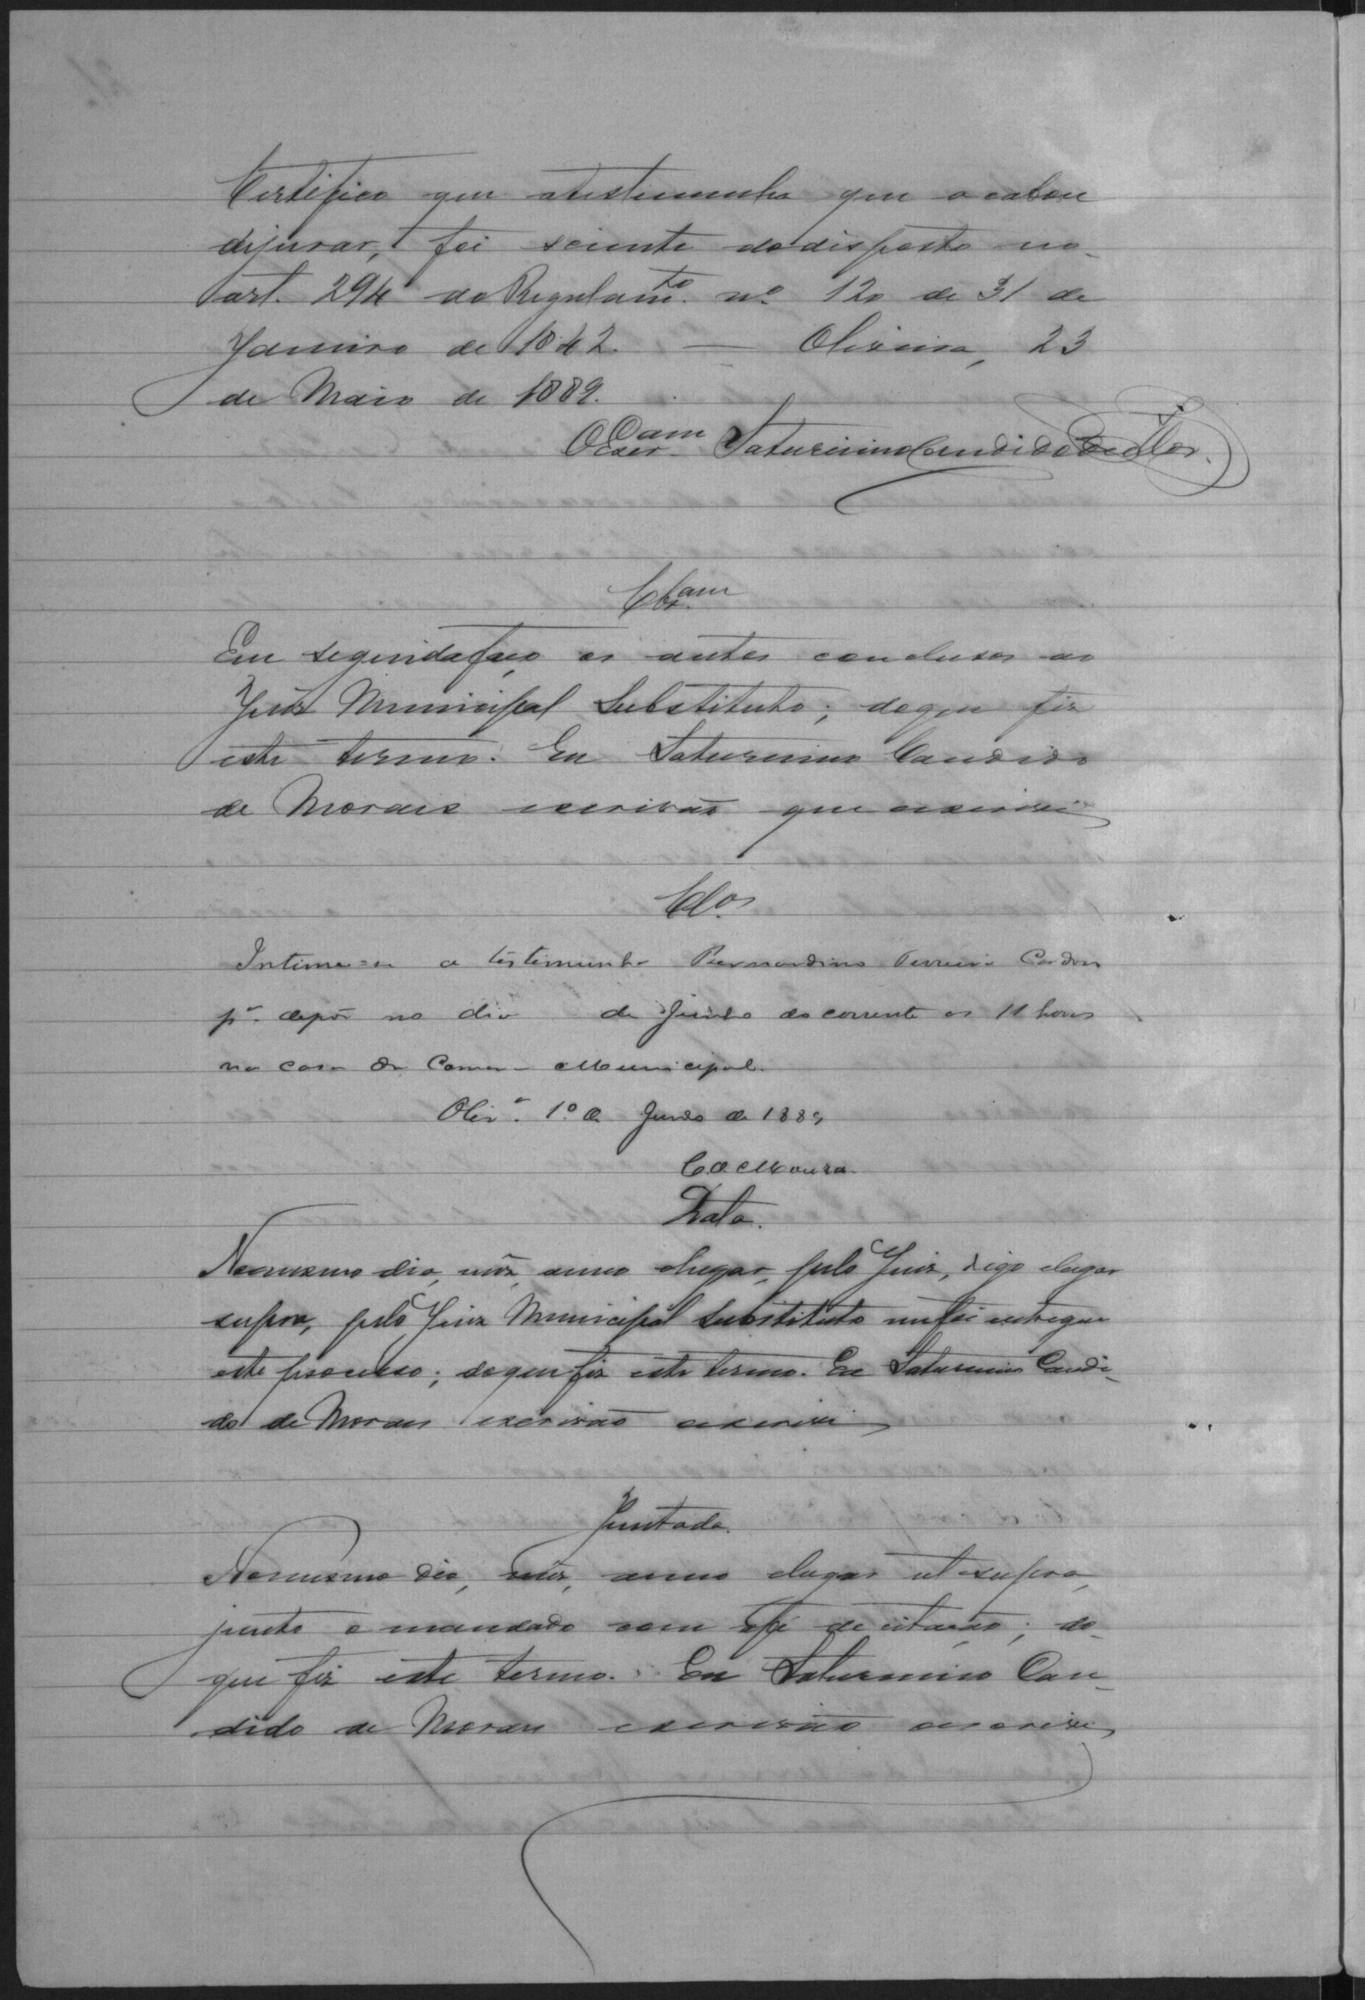 Certifico que a testemunha que acabou
dejurar, foi sciente do disposto no
art. 294 do Regulam.to nº 120 de 31 de
Janeiro de 1842. — Oliveira, 23
de Maio de 1889.
O Escr.am Saturnino Candido de Mor.
Cls.am
Em seguida faço os autos conclusos ao
Juiz Municipal Substituto; do que fiz
este termo. Eu Saturnino Candido
de Morais escrivão que escrevi
Clos
Intime-se a testemunha Bernardino Ferreira Cardoso
pª. depôr no dia de Junho do corrente as 11 horas
na casa da Camara Municipal.
Olivª. 1º de Junho de 1889
C. de Moura.
Data.
No mesmo dia, mêz, anno e lugar, pelo Juiz, digo e lugar
supra, pelo Juiz Municipal Substituto me foi entregue
este processo; do que fiz este termo. Eu Saturnino Candi-
do de Morais escrivão escrevi
Juntada.
No mesmo dia, mêz, anno e lugar ut supra,
junto o mandado com a fé de citação; do
que fiz este termo. Eu Saturnino Can-
dido de Morais escrivão escrevi